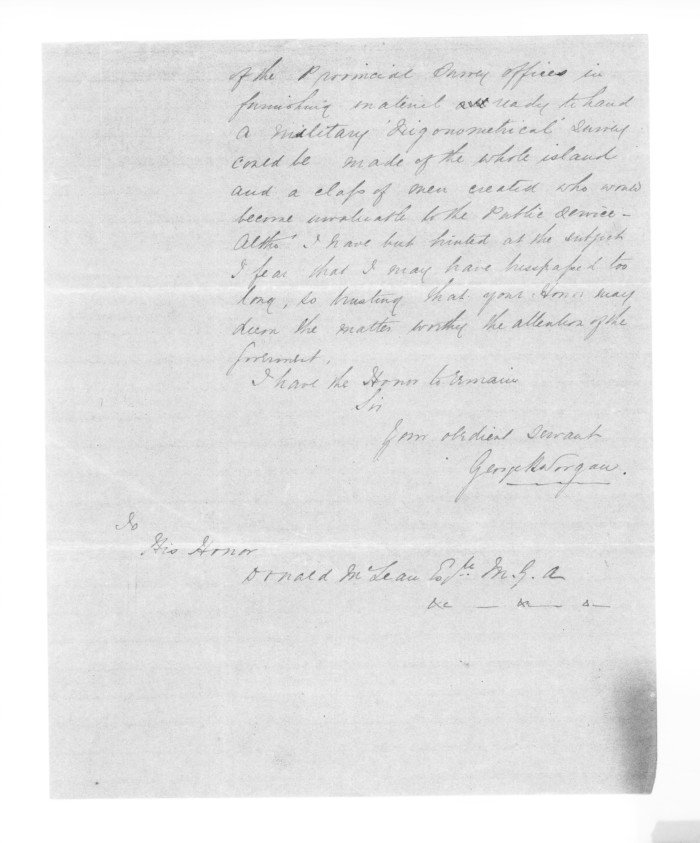 of the Provincial Survey offices in
furnishing material all ready to hand
a Military 'Trigonometrical' Survey
could be made of the whole island
and a class of men created who would
become invaluable to the Public Service -
Altho' I have but hinted at the subject
I fear that I may have trespassed too
long, so trusting that your Honor may
deem the matter worthy the attention of the
Goverment.
I have the Honor to remain
Sir
Your obedient Servant
George
To
His Honor
Donald McLean Esqre M. G. A
&c — &c — &—